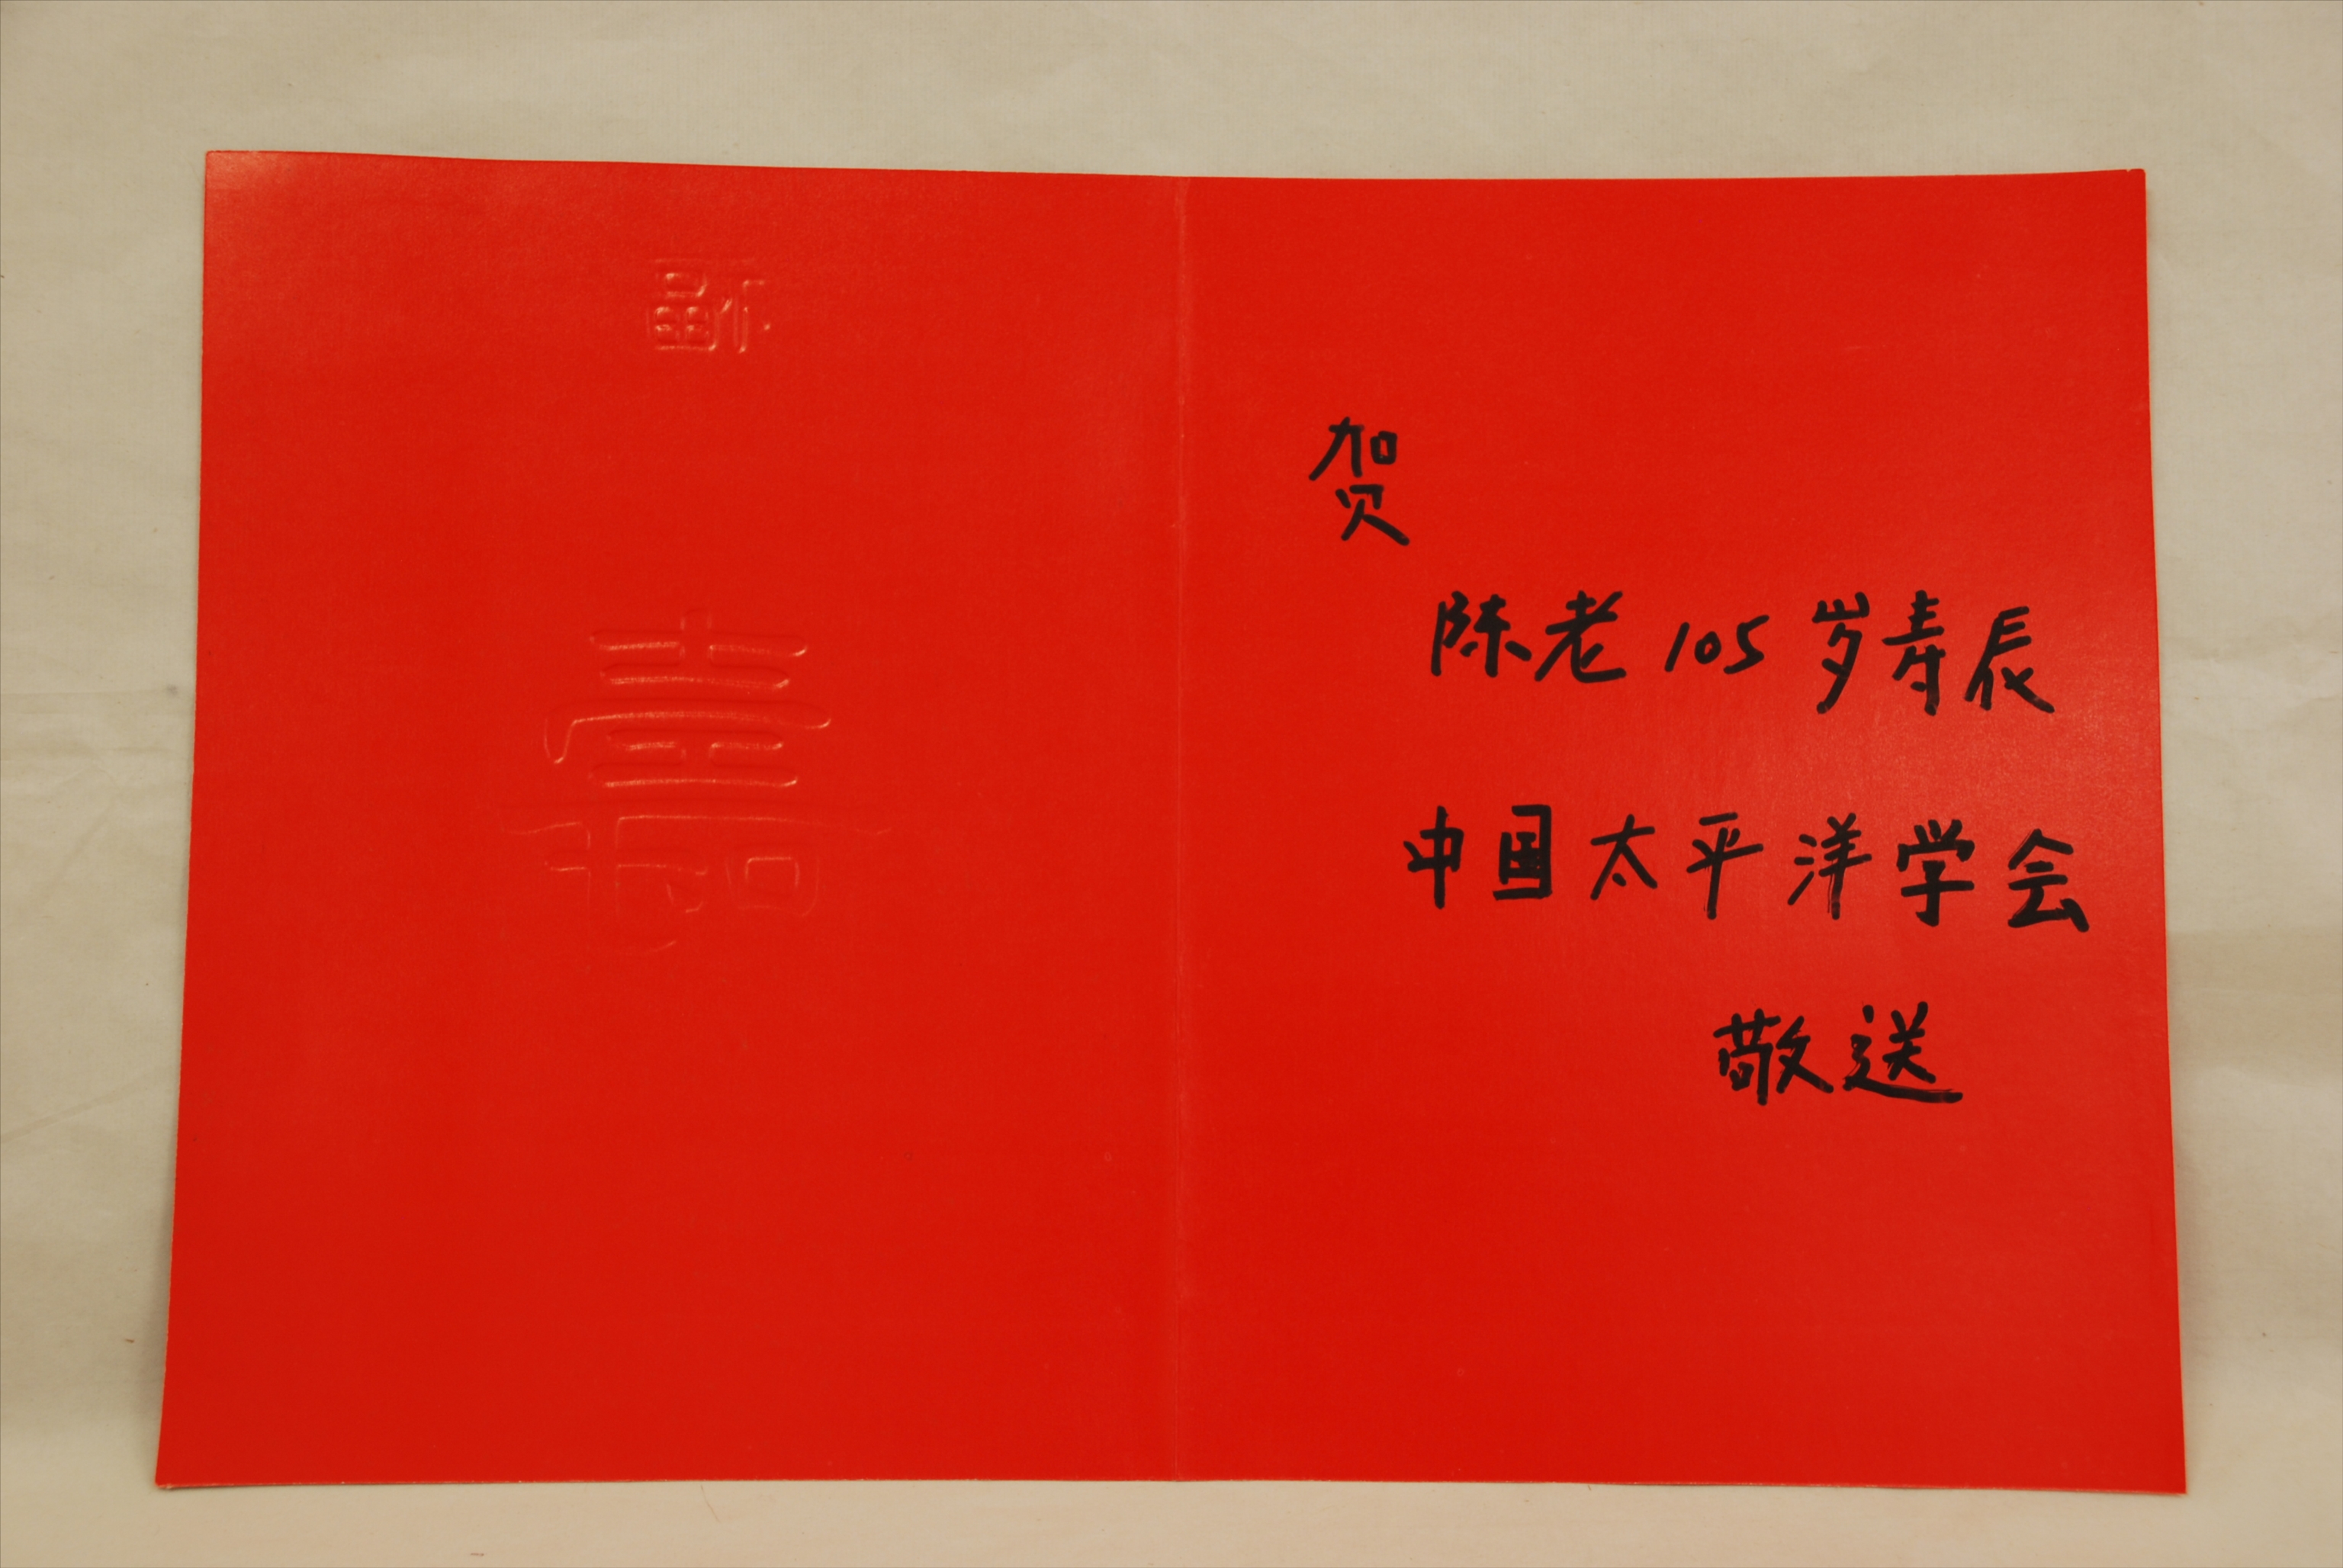 福
壽
贺
陈老105岁寿辰
中国太平洋学会
敬送